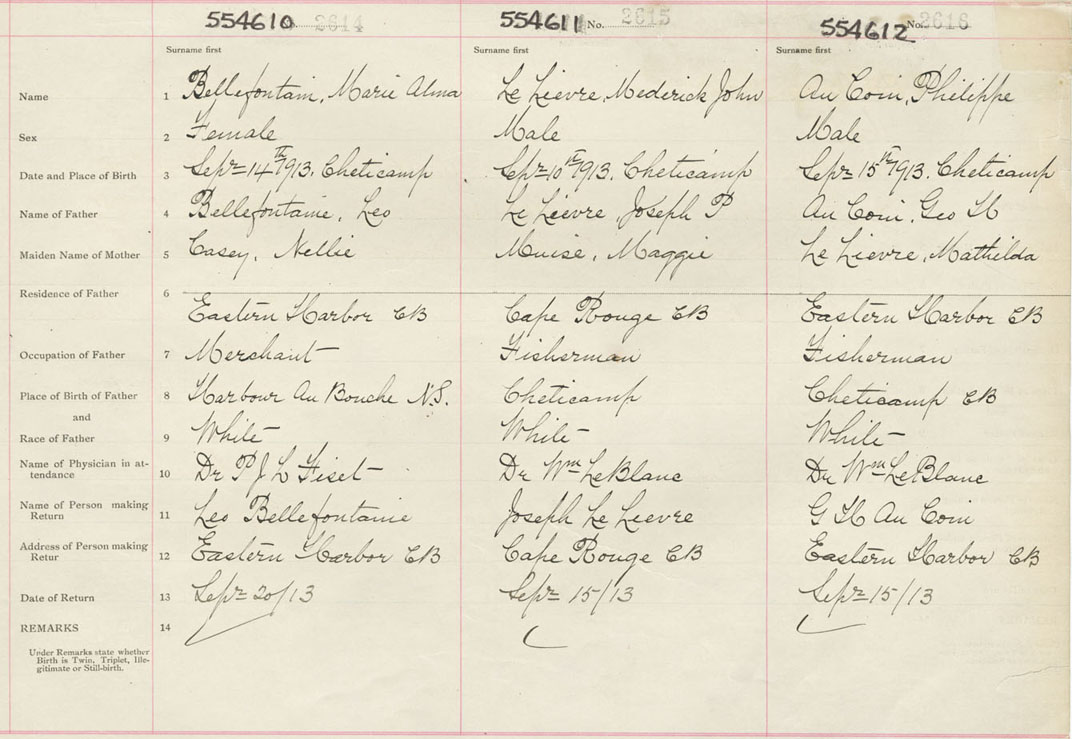 554610 2614 554611 No. 2615 554612 No. 2616
Surname first Surname first Surname first
Name 1 Bellefontain, Marie Alma Le Lievre, Mederick John Au Coin, Philippe
Sex 2 Female Male Male
Date and Place of Birth 3 Sepr 14th 1913. Cheticamp Sepr 10th 1913. Cheticamp Sepr 15th 1913. Cheticamp
Name of Father 4 Bellefontaine, Leo Le Lievre, Joseph P Au Coin, Geo H
Maiden Name of Mother 5 Casey, Nellie Muise, Maggie Le Lievre, Mathilda
Residence of Father 6
Eastern Harbor CB Cape Rouge CB Eastern Harbor CB
Occupation of Father 7 Merchant Fisherman Fisherman
Place of Birth of Father 8 Harbour Au Bouche N.S. Cheticamp Cheticamp CB
and
Race of Father 9 White White White
Name of Physician in at-
tendance 10 Dr P J L Fiset Dr Wm LeBlanc Dr Wm LeBlanc
Name of Person making
Return 11 Leo Bellefontaine Joseph Le Lievre G H Au Coin
Address of Person making
Retur 12 Eastern Harbor CB Cape Rouge CB Eastern Harbor CB
Date of Return 13 Sepr 20/13 Sepr 15/13 Sepr 15/13
REMARKS 14
Under Remarks state whether
Birth is Twin, Triplet, Ille-
gitimate or Still-birth.